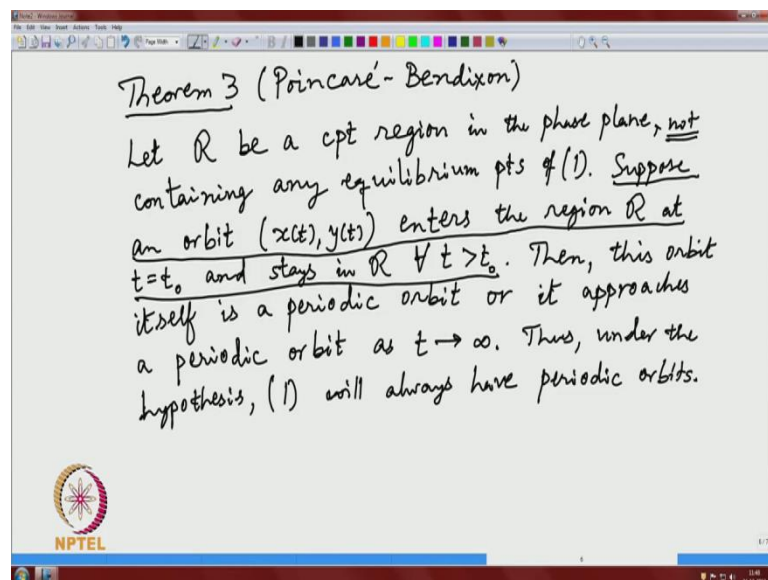 Note2 - Windows Journal
File Edit View Insert Actions Tools Help
Page Width
Theorem 3 (Poincaré - Bendixon)
Let R be a cpt region in the phase plane, not
containing any equilibrium pts of (1). Suppose
an orbit (x(t), y(t)) enters the region R at
t=t₀ and stays in R ∀ t > t₀. Then, this orbit
itself is a periodic orbit or it approaches
a periodic orbit as t → ∞. Thus, under the
hypothesis, (1) will always have periodic orbits.
NPTEL